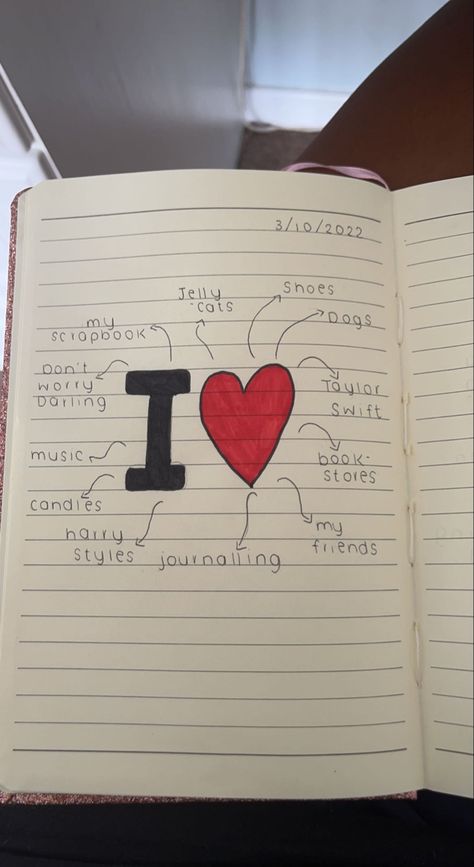 3/10/2022
Jelly
-cats
Shoes
my
scrapbook
Dogs
Don't
worry
Darling
I
Taylor
Swift
music
book-
stores
candles
harry
styles
journalling
my
friends